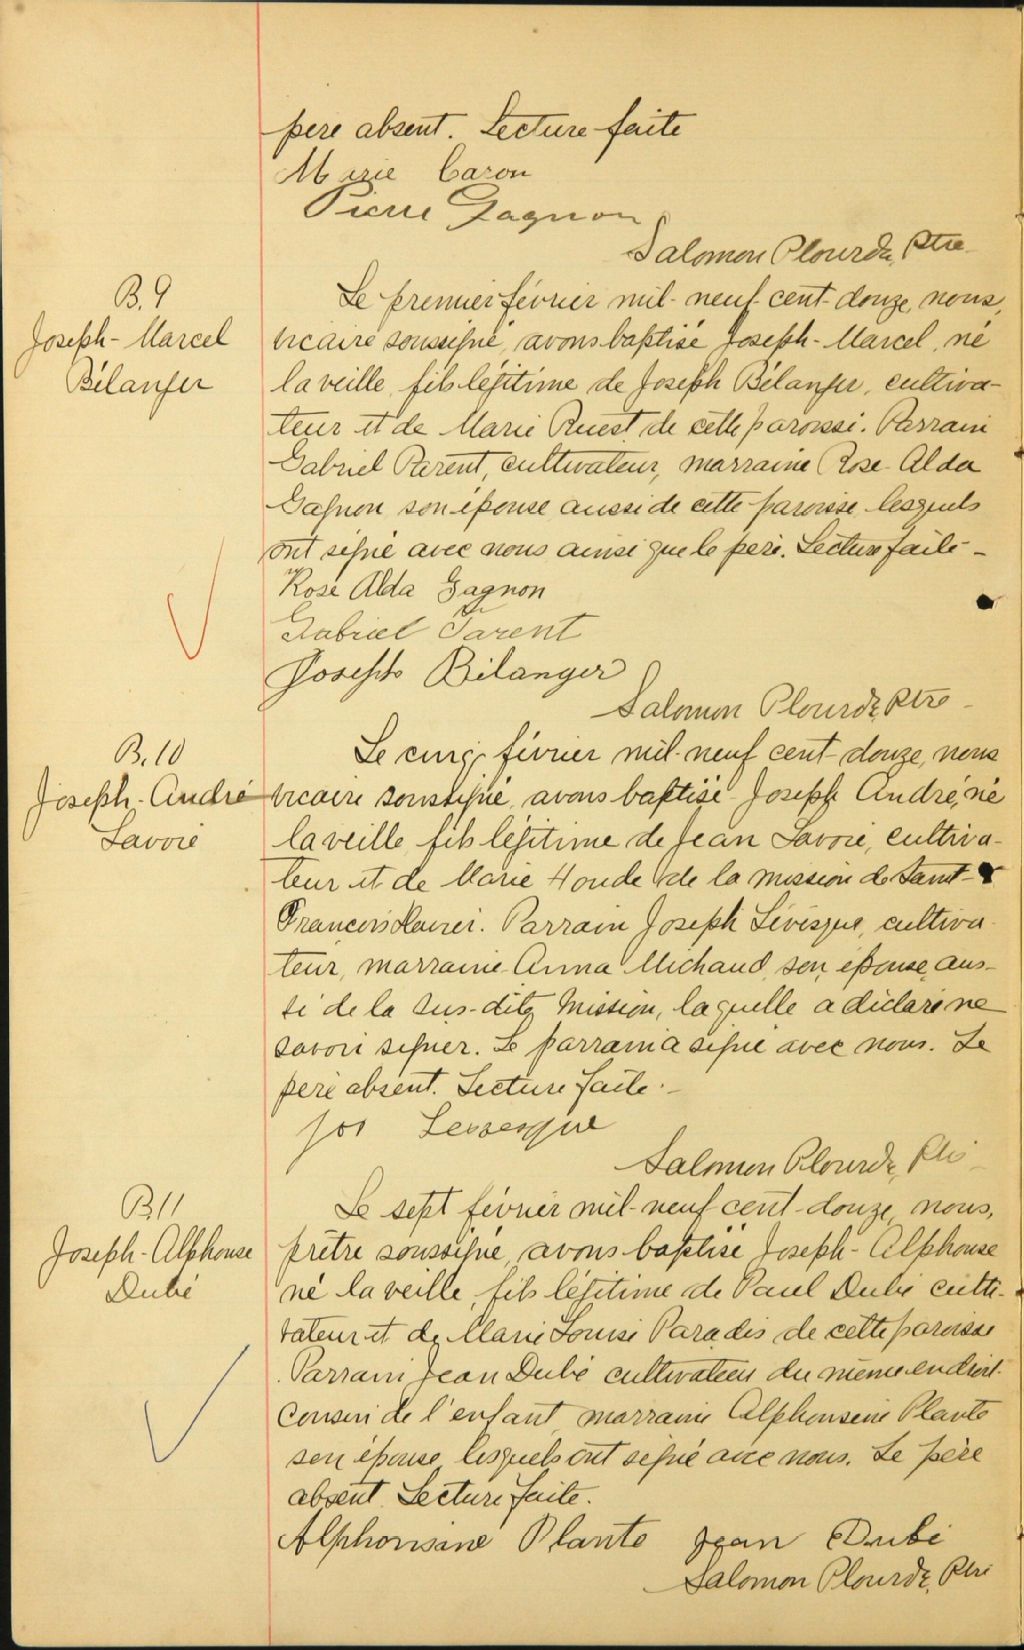 père absent. Lecture faite
Marie Caron
Pierre Gagnon
Salomon Plourde, Ptre
B. 9
Joseph-Marcel
Bélanger
Le premier février mil-neuf-cent-douze, nous,
vicaire soussigné, avons baptisé Joseph-Marcel, né
la veille, fils légitime de Joseph Bélanger, cultiva-
teur et de Marie Ruest de cette paroisse. Parrain
Gabriel Parent, cultivateur, marraine Rose-Alda
Gagnon son épouse aussi de cette paroisse lesquels
ont signé avec nous ainsi que le père. Lecture faite -
Rose Alda Gagnon
Gabriel Parent
Joseph Bélanger
Salomon Plourde, Ptre
B. 10
Joseph-André
Lavoie
Le cinq février mil-neuf cent-douze, nous
vicaire soussigné, avons baptisé Joseph André, né
la veille, fils légitime de Jean Lavoie, cultiva-
teur et de Marie Houde de la mission de Saint-
François Xavier. Parrain Joseph Lévesque, cultiva-
teur, marraine Anna Michaud, son épouse, aus-
si de la sus-dite Mission, laquelle a déclaré ne
savoir signer. Le parrain a signé avec nous. Le
père absent. Lecture faite. -
Jos Levesque
Salomon Plourde, Ptre
B 11
Joseph-Alphonse
Dubé
Le sept février mil-neuf cent-douze, nous,
prêtre soussigné, avons baptisé Joseph-Alphonse
né la veille, fils légitime de Paul Dubé culti-
vateur et de Marie Louise Paradis de cette paroisse
Parrain Jean Dubé cultivateur du même endroit
cousin de l'enfant, marraine Alphonsine Plante
son épouse, lesquels ont signé avec nous. Le père
absent. Lecture faite.
Alphonsine Plante Jean Dubé
Salomon Plourde, Ptre